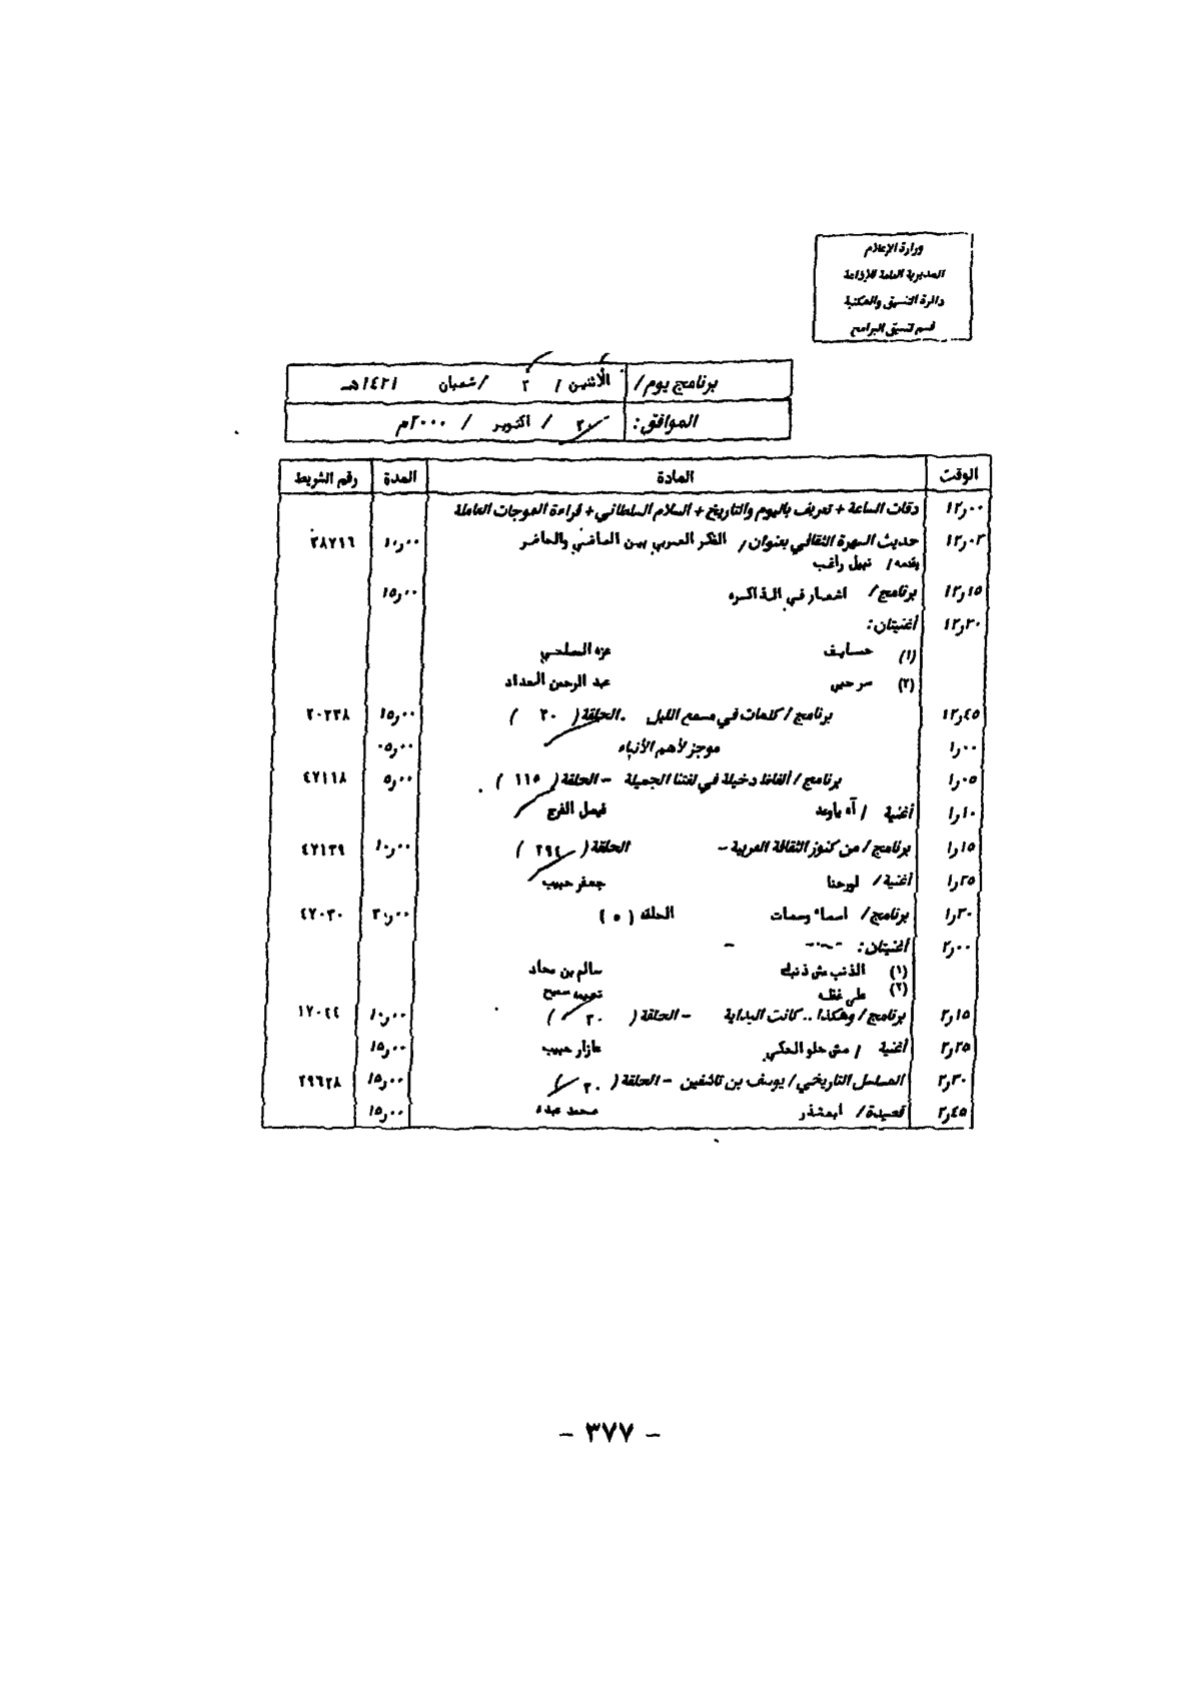 وزارة الإعلام
المديرية العامة للإذاعة
دائرة التنسيق والمكتبة
قسم تنسيق البرامج
برنامج يوم/ الاثنين / ٣ / شعبان ١٤٢١هـ
الموافق: ٣٠ / اكتوبر / ٢٠٠٠م
الوقت المادة المدة رقم الشريط
١٢ر٠٠ دقات الساعة + تعريف باليوم والتاريخ + السلام السلطاني + قراءة الموجات العاملة
١٢ر٠٢ حديث السهرة الثقافي بعنوان / الفكر العربي بين الماضي والحاضر ١٠ر٠٠ ٣٨٧١٦
يقدمه / نبيل راغب
١٢ر١٥ برنامج / اشعار في الذاكره ١٥ر٠٠
١٢ر٣٠ أغنيتان:
(١) حسايف عزه
(٢) سر حبي عبد الرحمن الحداد
١٢ر٤٥ برنامج / كلمات في مسمع الليل . الحلقة ( ٣٠ ) ١٥ر٠٠ ٢٠٢٣٨
١ر٠٠ موجز لأهم الأنباء ٠٥ر٠٠
١ر٠٥ برنامج / ألفاظ دخيلة في لغتنا الجميلة – الحلقة ( ١١٥ ) ٥ر٠٠ ٤٧١١٨
١ر١٠ أغنية / آه ياوعد فيصل الفرج
١ر١٥ برنامج / من كنوز الثقافة العربية – الحلقة ( ٢٩٤ ) ١٠ر٠٠ ٤٧١٣٩
١ر٢٥ أغنية / لورحنا جعفر حبيب
١ر٣٠ برنامج / اسماء وسمات الحلقة ( ٥ ) ٣٠ر٠٠ ٤٧٠٣٠
٢ر٠٠ أغنيتان:
(١) الذنب مش ذنبك سالم بن محاد
(٢) على سميح
٢ر١٥ برنامج / وهكذا .. كانت البداية – الحلقة ( ٣٠ ) ١٠ر٠٠ ١٧٠٤٤
٢ر٢٥ أغنية / مش حلو الحكي عازار حبيب ١٥ر٠٠
٢ر٣٠ المسلسل التاريخي / يوسف بن تاشفين – الحلقة ( ٣٠ ) ١٥ر٠٠ ٢٩٦٢٨
٢ر٤٥ قصيدة / محمد عبده ١٥ر٠٠
– ٣٧٧ –